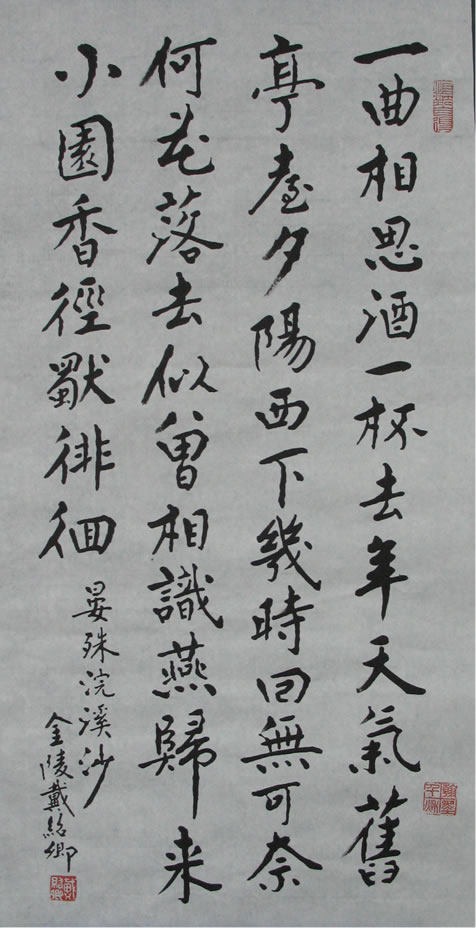 一曲相思酒一杯去年天氣舊
亭臺夕陽西下幾時回無可奈
何花落去似曾相識燕歸来
小園香徑獨徘徊
晏殊浣溪沙
金陵戴紹卿